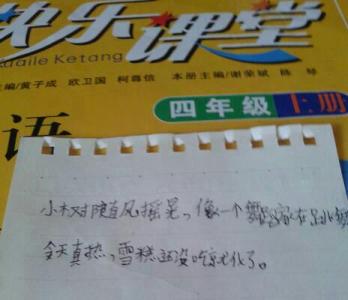 快乐课堂
uaile Ketang
主编/黄子成 欧卫国 柯尊信 本册主编/谢荣斌 陈 琴
四年级 上册
语
小树随风摇晃,像一个舞蹈家在跳舞
今天真热,雪糕还没吃就化了。